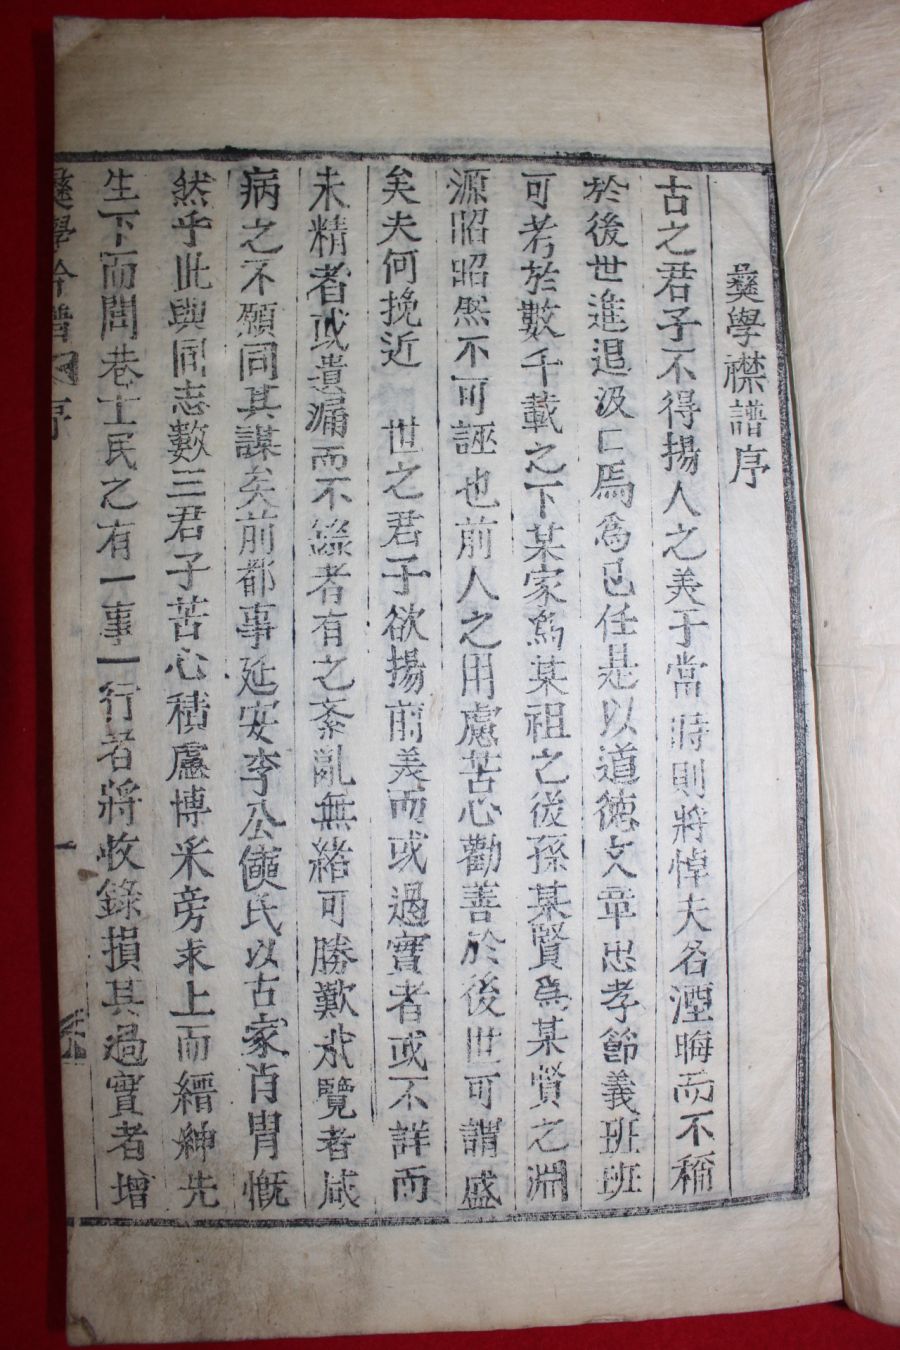 彝學襟譜序
古之君子不得揚人之美于當時則將悼夫名湮晦而不稱
於後世進退汲汲焉爲己任是以道德文章忠孝節義班班
可考於數千載之下某家爲某祖之後孫某賢爲某賢之淵
源昭昭然不可誣也前人之用慮苦心勸善於後世可謂盛
矣夫何挽近 世之君子欲揚前美而或過實者或不詳而
未精者或遺漏而不錄者有之紊亂無緖可勝歎哉覽者咸
病之不願同其謀矣前都事延安李公 氏以古家肖胄慨
然乎此與同志數三君子苦心積慮博采旁求上而縉紳先
生下而閭巷士民之有一事一行者將收錄損其過實者增
彝學 譜 序 一